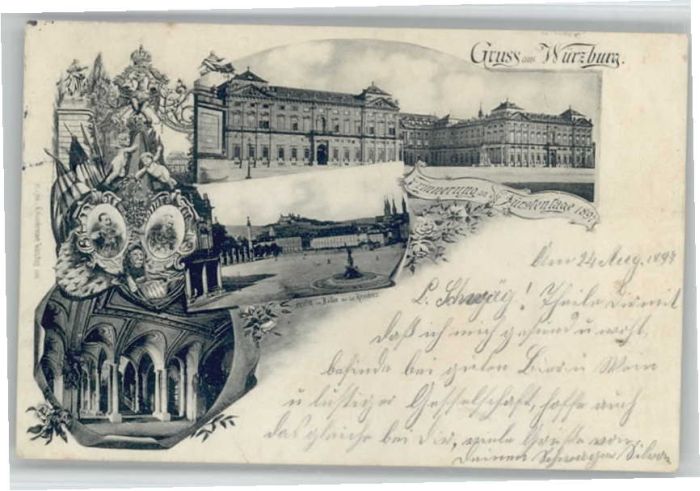 Gruss aus Würzburg.
Erinnerung an die
Fürstentage 1897
Am 24 Aug. 1897
L. Schwäg! Theile Dir mit
daß ich mich gesund u wohl
befinde bei gutem Bier u Wein
u lustiger Gesellschaft, hoffe auch
das gleiche bei Dir, viele Grüße von
Deinem Schwager